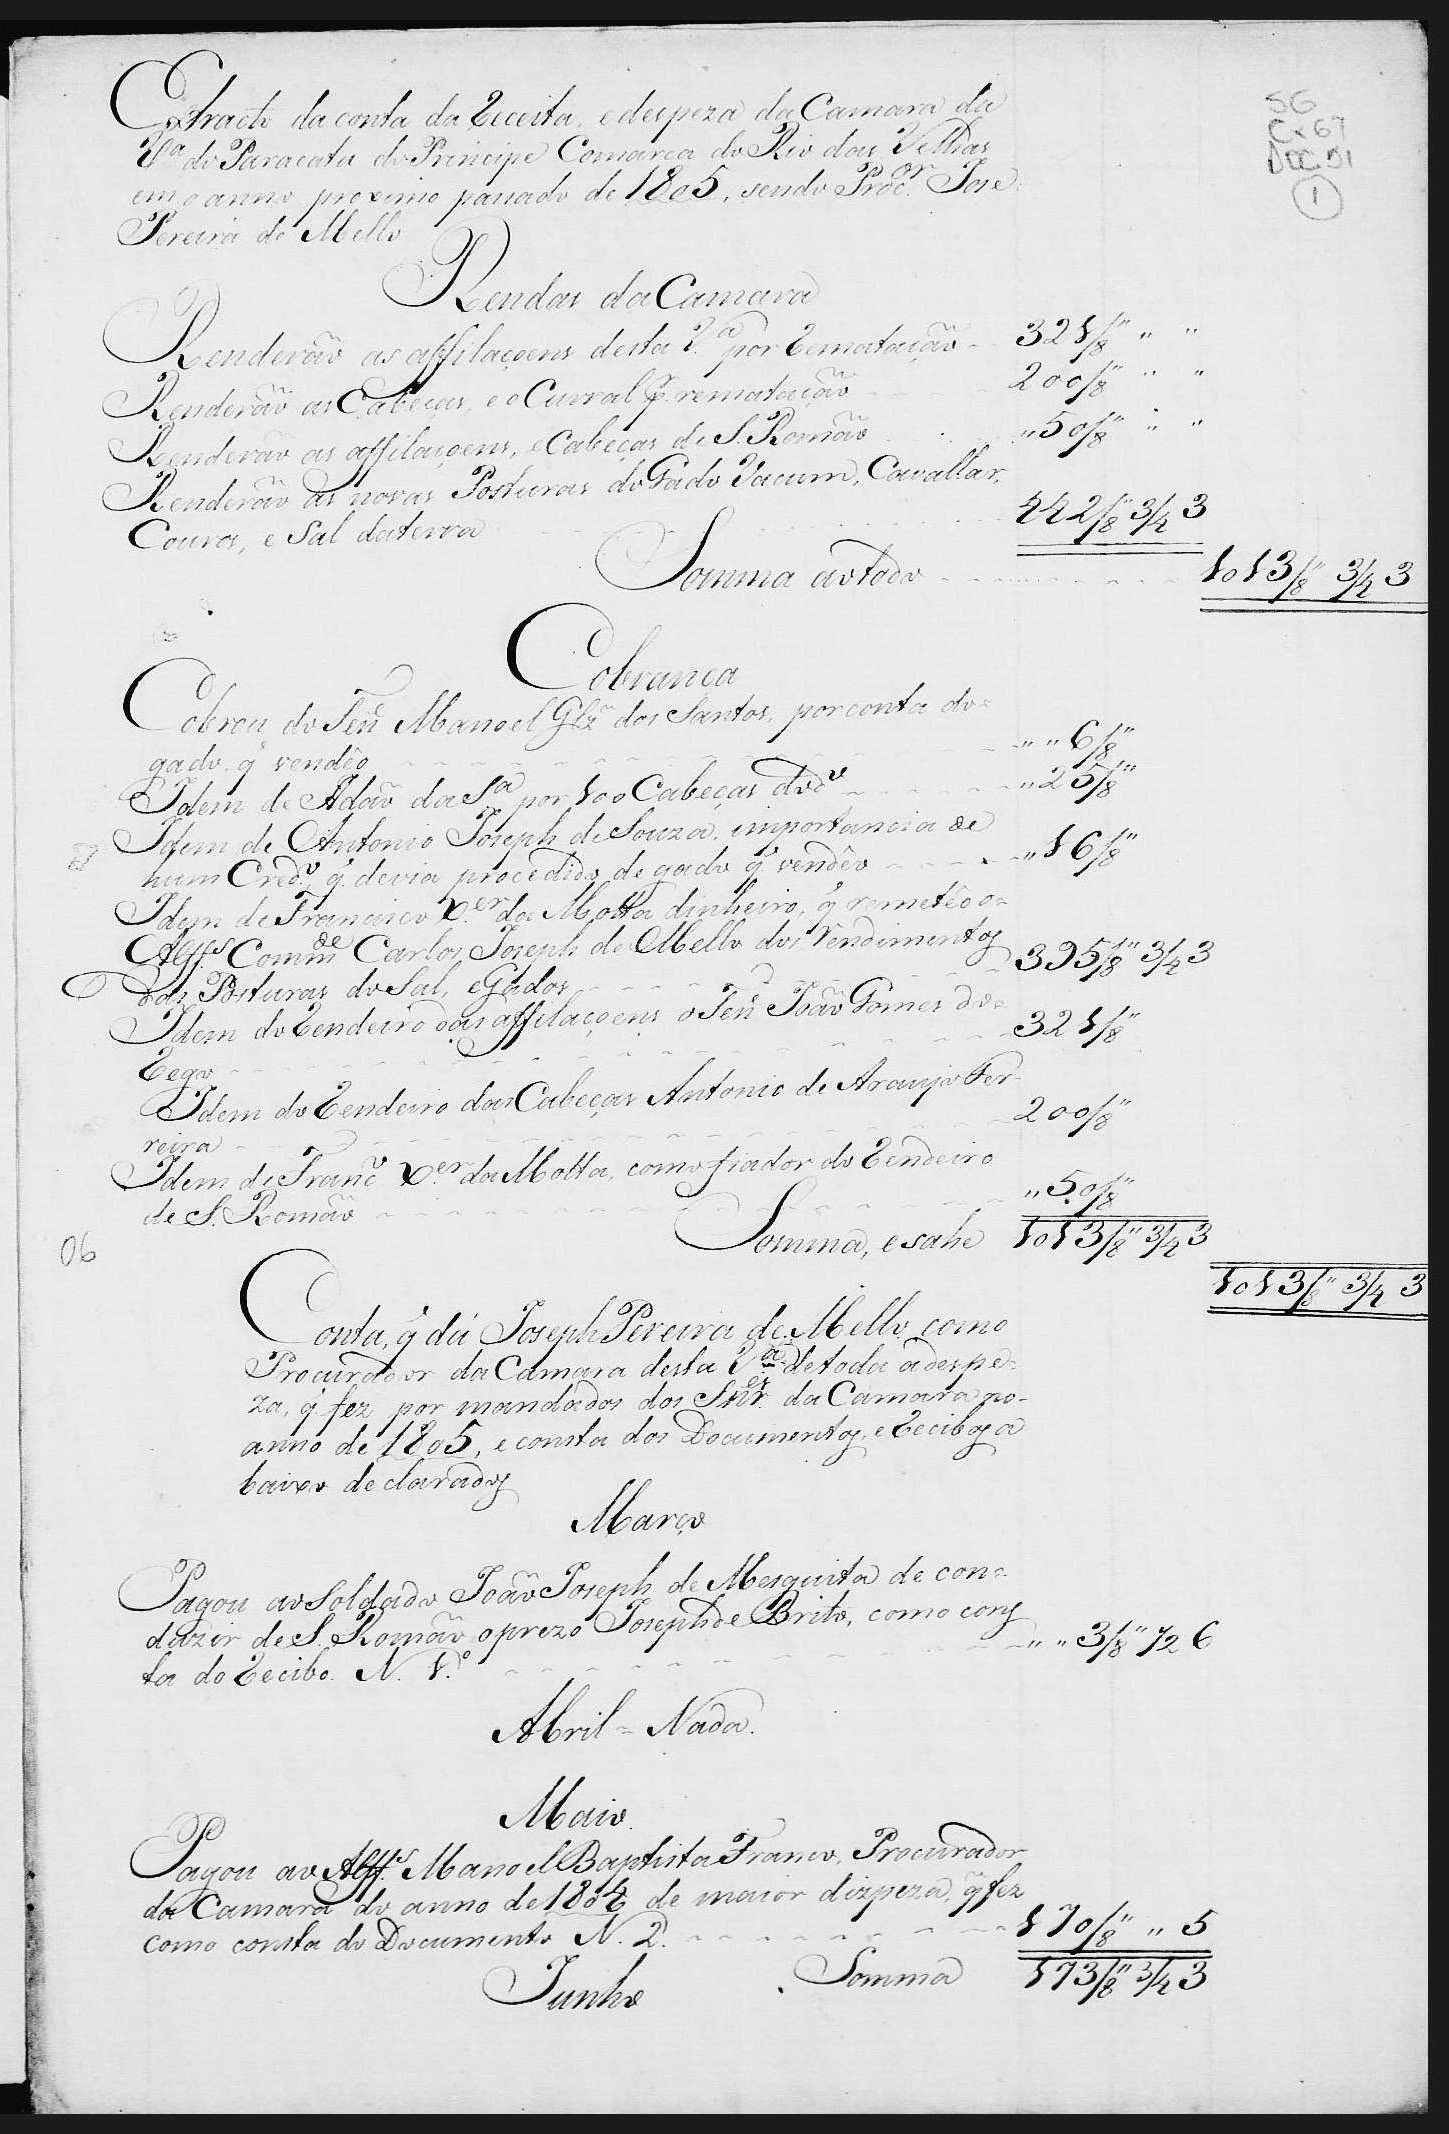 Extracto da conta da Receita, e despeza da Camara da
V.ª do Paracatu do Principe Comarca do Rio das Velhas
em o anno proximo passado de 1805, sendo Proc.or Jose
Pereira de Mello
SG
Cx 67
Doc. 51
1
Rendas da Camara
Renderão as affilaçoens desta V.ª por Rematação 321/8" " "
Renderão as Cabeças, e o Curral p. rematação 200/8" " "
Renderão as affilaçoens, e Cabeças de S. Romão "50/8" " "
Renderão as novas Posturas do Gado Vacum, Cavallar,
Couros, e Sal da terra 442/8" 3/4 3
Somma ao todo 1013/8" 3/4 3
Cobranca
Cobrou do Ten.e Manoel Glz dos Santos, por conta do=
gado q̃ vendêo " " 6/8"
Idem de Adão da S.ª por 100 Cabeças do d.º "25/8"
Idem de Antonio Joseph de Souza, importancia de
hum Cred.º, q̃ devia procedido de gado q̃ vendêo "16/8"
Idem de Francisco X.er da Motta dinheiro, q̃ remetêo o=
Alff.s Comm.de Carlos Joseph de Mello dos Rendimentos
das Posturas do Sal, e Gados 395/8" 3/4 3
Idem do Rendeiro das affilaçoens o Ten.e João Gomes do=
Rego 321/8"
Idem do Rendeiro das Cabeças Antonio de Araujo Fer-
reira 200/8"
Idem de Franc.º X.er da Motta, como fiador do Rendeiro
de S. Romão "50/8"
06
Somma, e sahe 1013/8" 3/4 3
1013/8" 3/4 3
Conta, q̃ dá Joseph Pereira de Mello como
Procurador da Camara desta V.ª de toda a despe=
za, q̃ fez por mandados dos Snr.es da Camara no-
anno de 1805, e consta dos Documentos, e Recibos a
baixo declarados
Março
Pagou ao Soldado João Joseph de Mesquita de con=
duzir de S. Romão o prezo Joseph de Brito, como cons
ta do Recibo N. 1.º " " 3/8" 1/2 6
Abril = Nada.
Maio
Pagou ao Alff.s Manoel Baptista Franco, Procurador
da Camara do anno de 1804 de maior dispeza, q̃ fez
como consta do Documento N. 2. 170/8" " 5
Somma 173/8" 3/4 3
Junho